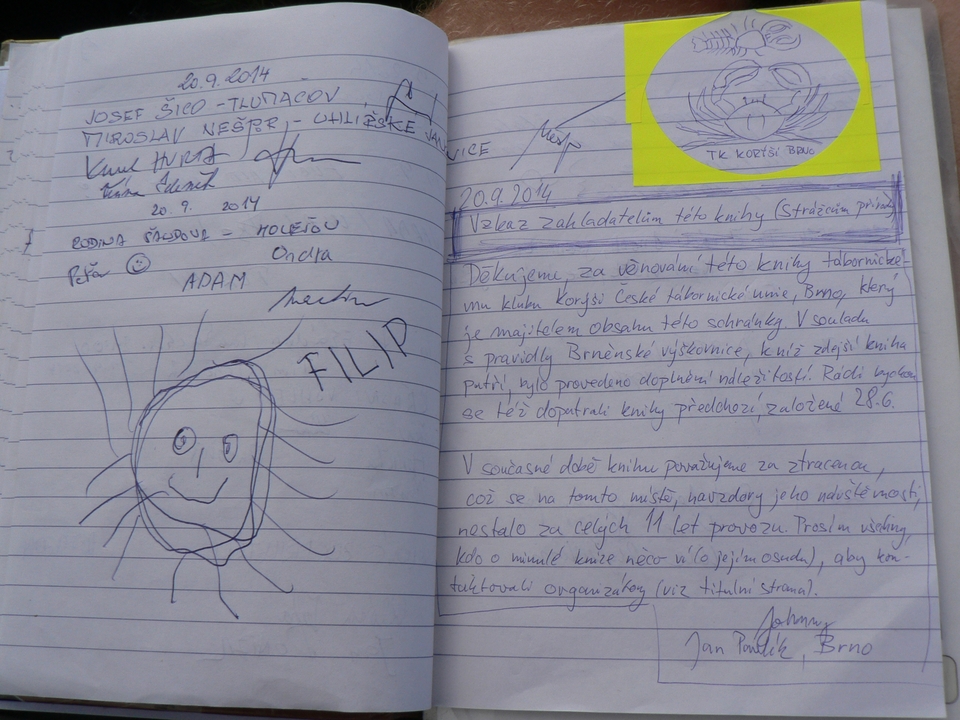 20.9.2014
JOSEF ŠICO - TLUMAČOV
MIROSLAV NEŠPOR - UHLIŘSKÉ JANOVICE
Karel HURTA
20. 9. 2014
RODINA - HOLEŠOV
Peťa Ondra
ADAM
Martin
FILIP
TK KORÝŠI BRNO
20.9.2014
Vzkaz zakladatelům této knihy (Strážcům přírody)
Děkujeme za věnování této knihy tábornické-
mu klubu Korýši České tábornické unie, Brno, který
je majitelem obsahu této schránky. V souladu
s pravidly Brněnské výškovnice, k níž zdejší kniha
patří, bylo provedeno doplnění náležitostí. Rádi bychom
se též dopátrali knihy předchozí, založené 28.6.
V současné době knihu považujeme za ztracenou,
což se na tomto místě, navzdory jeho návštěvnosti,
nestalo za celých 11 let provozu. Prosím všechny,
kdo o minulé knize něco ví (o jejím osudu), aby kon-
taktovali organizátory (viz titulní strana).
Johnny
Jan Pavlík, Brno